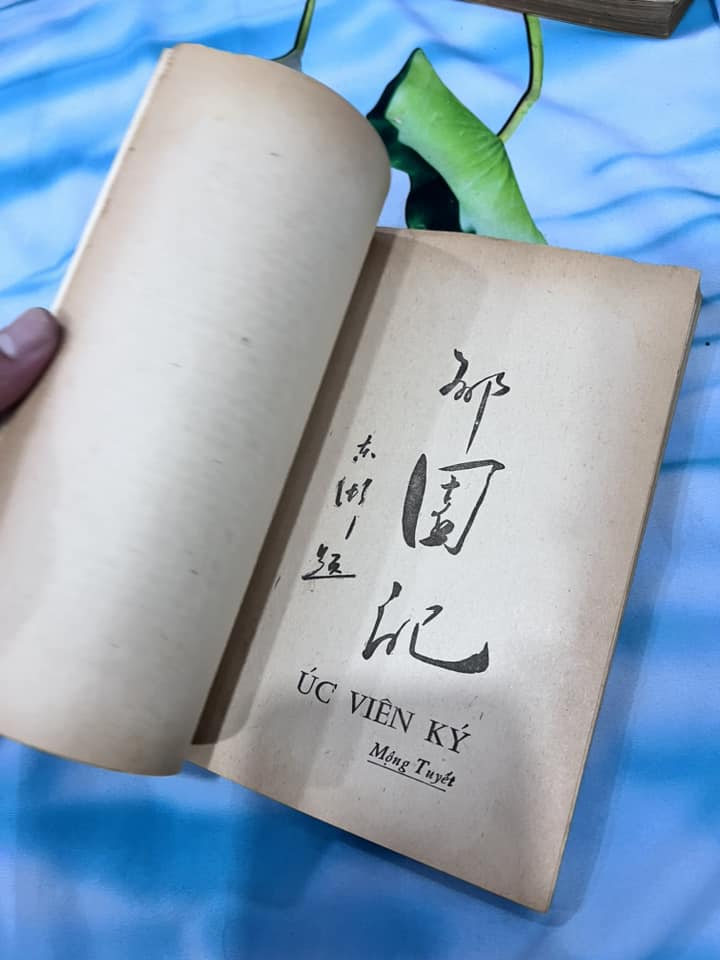 郁園記
東湖題
ÚC VIÊN KÝ
Mộng Tuyết